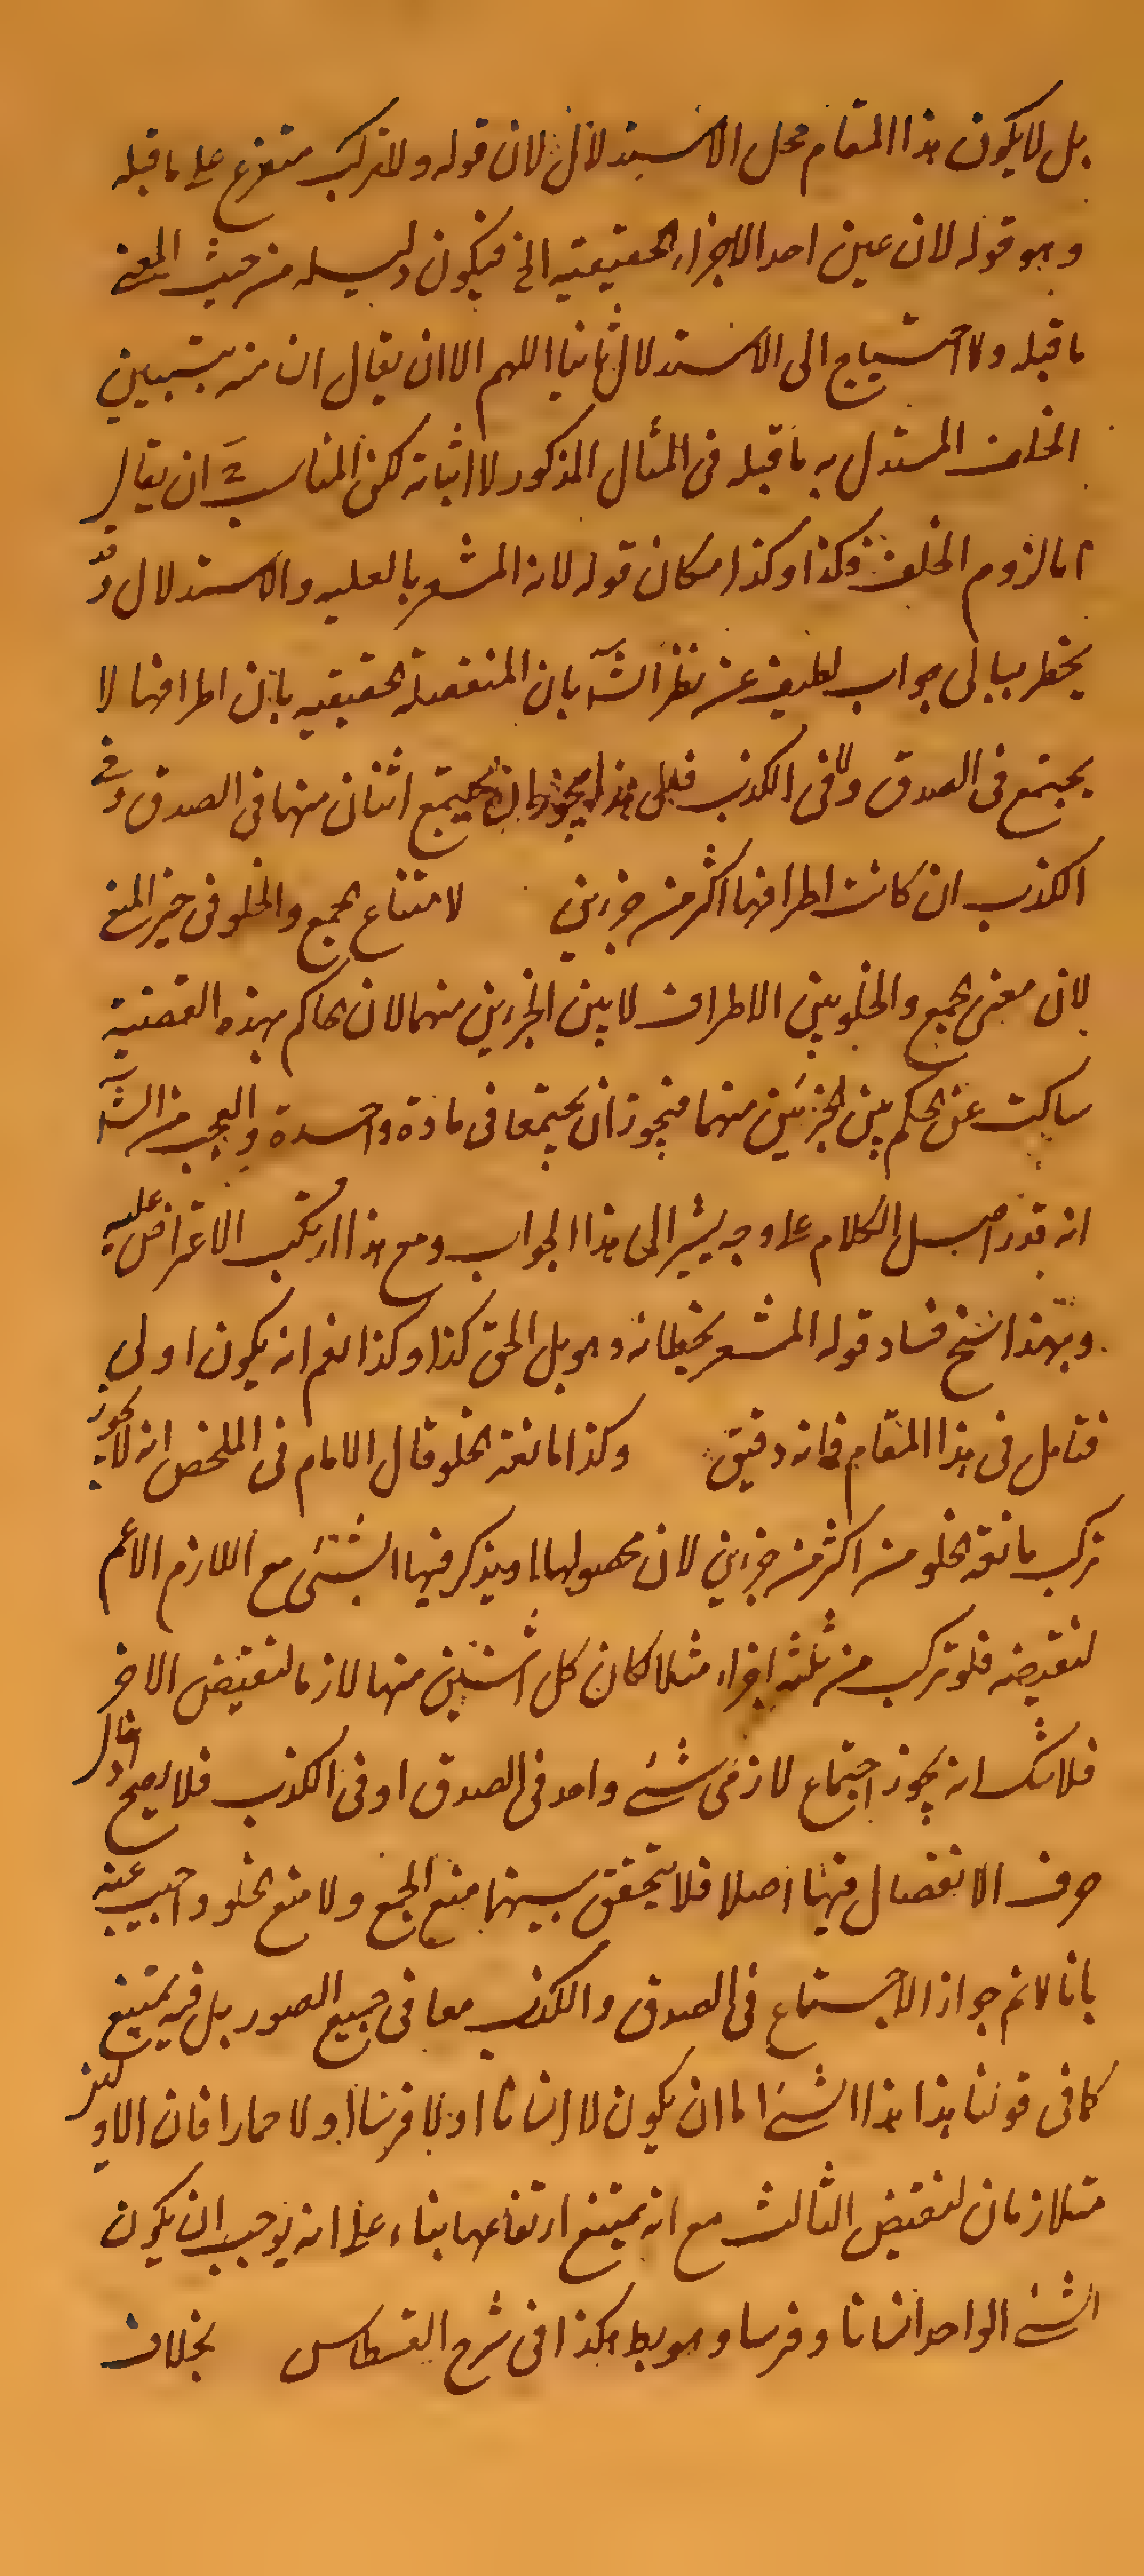 بل لا يكون هذا المقام محل الاستدلال لان قوله ولا تركب متفرع على ما قبله
وهو قوله لان عين احد الاجزاء الحقيقية الخ فيكون دليله من حيث المعنى
ما قبله ولا احتياج الى الاستدلال ثانيا اللهم الا ان يقال ان منه يتبين
الخلف المستدل به ما قبله فى المثال المذكور لا اثباته لكن المناسب ح ان يقال
اما لزوم الخلف فكذا وكذا مكان قوله لانه المشعر بالعليه والاستدلال وقد
يخطر ببالى جواب لطيف عن نظر الش بان المنفصلة الحقيقيه بان اطرافها لا
يجتمع فى الصدق ولا فى الكذب فعلى هذا يجوز ان يجتمع اثنان منها فى الصدق وفى
الكذب ان كانت اطرافها اكثر من جزءين لامتناع الجمع والخلو فى حيز المنع
لان معنى الجمع والخلو بين الاطراف لا بين الجزءين منهما لان الحاكم بهذه القضية
ساكت عن الحكم بين الجزئين منهما فيجوز ان يجتمعا فى مادة واحدة والعجب من الش
انه قدر اصل الكلام على وجه يشير الى هذا الجواب ومع هذا ارتكب الاعتراض عليه
وبهذا اتضح فساد قوله المشعر بخطائه وهو بل الحق كذا وكذا نعم انه يكون اولى
فتامل فى هذا المقام فانه دقيق وكذا مانعة الخلو قال الامام فى الملخص انه لا يجوز
تركب مانعة الخلو من اكثر من جزءين لان محصولها ما يذكر فيها الشئ مع اللازم الاعم
لنقيضه فلو تركب من ثلثه اجزاء مثلا كان كل اثنين منها لازما لنقيض الاخر
فلا شك انه يجوز اجتماع لازمى شئ واحد فى الصدق او فى الكذب فلا يصح ادخال
حرف الانفصال فيها اصلا فلا يتحقق بينهما منع الجمع ولا منع الخلو واجيب عنه
بانا لا نم جواز الاجتماع فى الصدق والكذب معا فى جميع الصور بل فيه يمتنع
كما فى قولنا هذا هذا الشئ اما ان يكون لا انسانا او لا فرسا او لا حمارا فان الاولين
متلازمان لنقيض الثالث مع انه يمتنع ارتفاعهما بناء على انه يوجب ان يكون
الشئ الواحد انسانا وفرسا وهو بط هكذا فى شرح القسطاس بخلاف